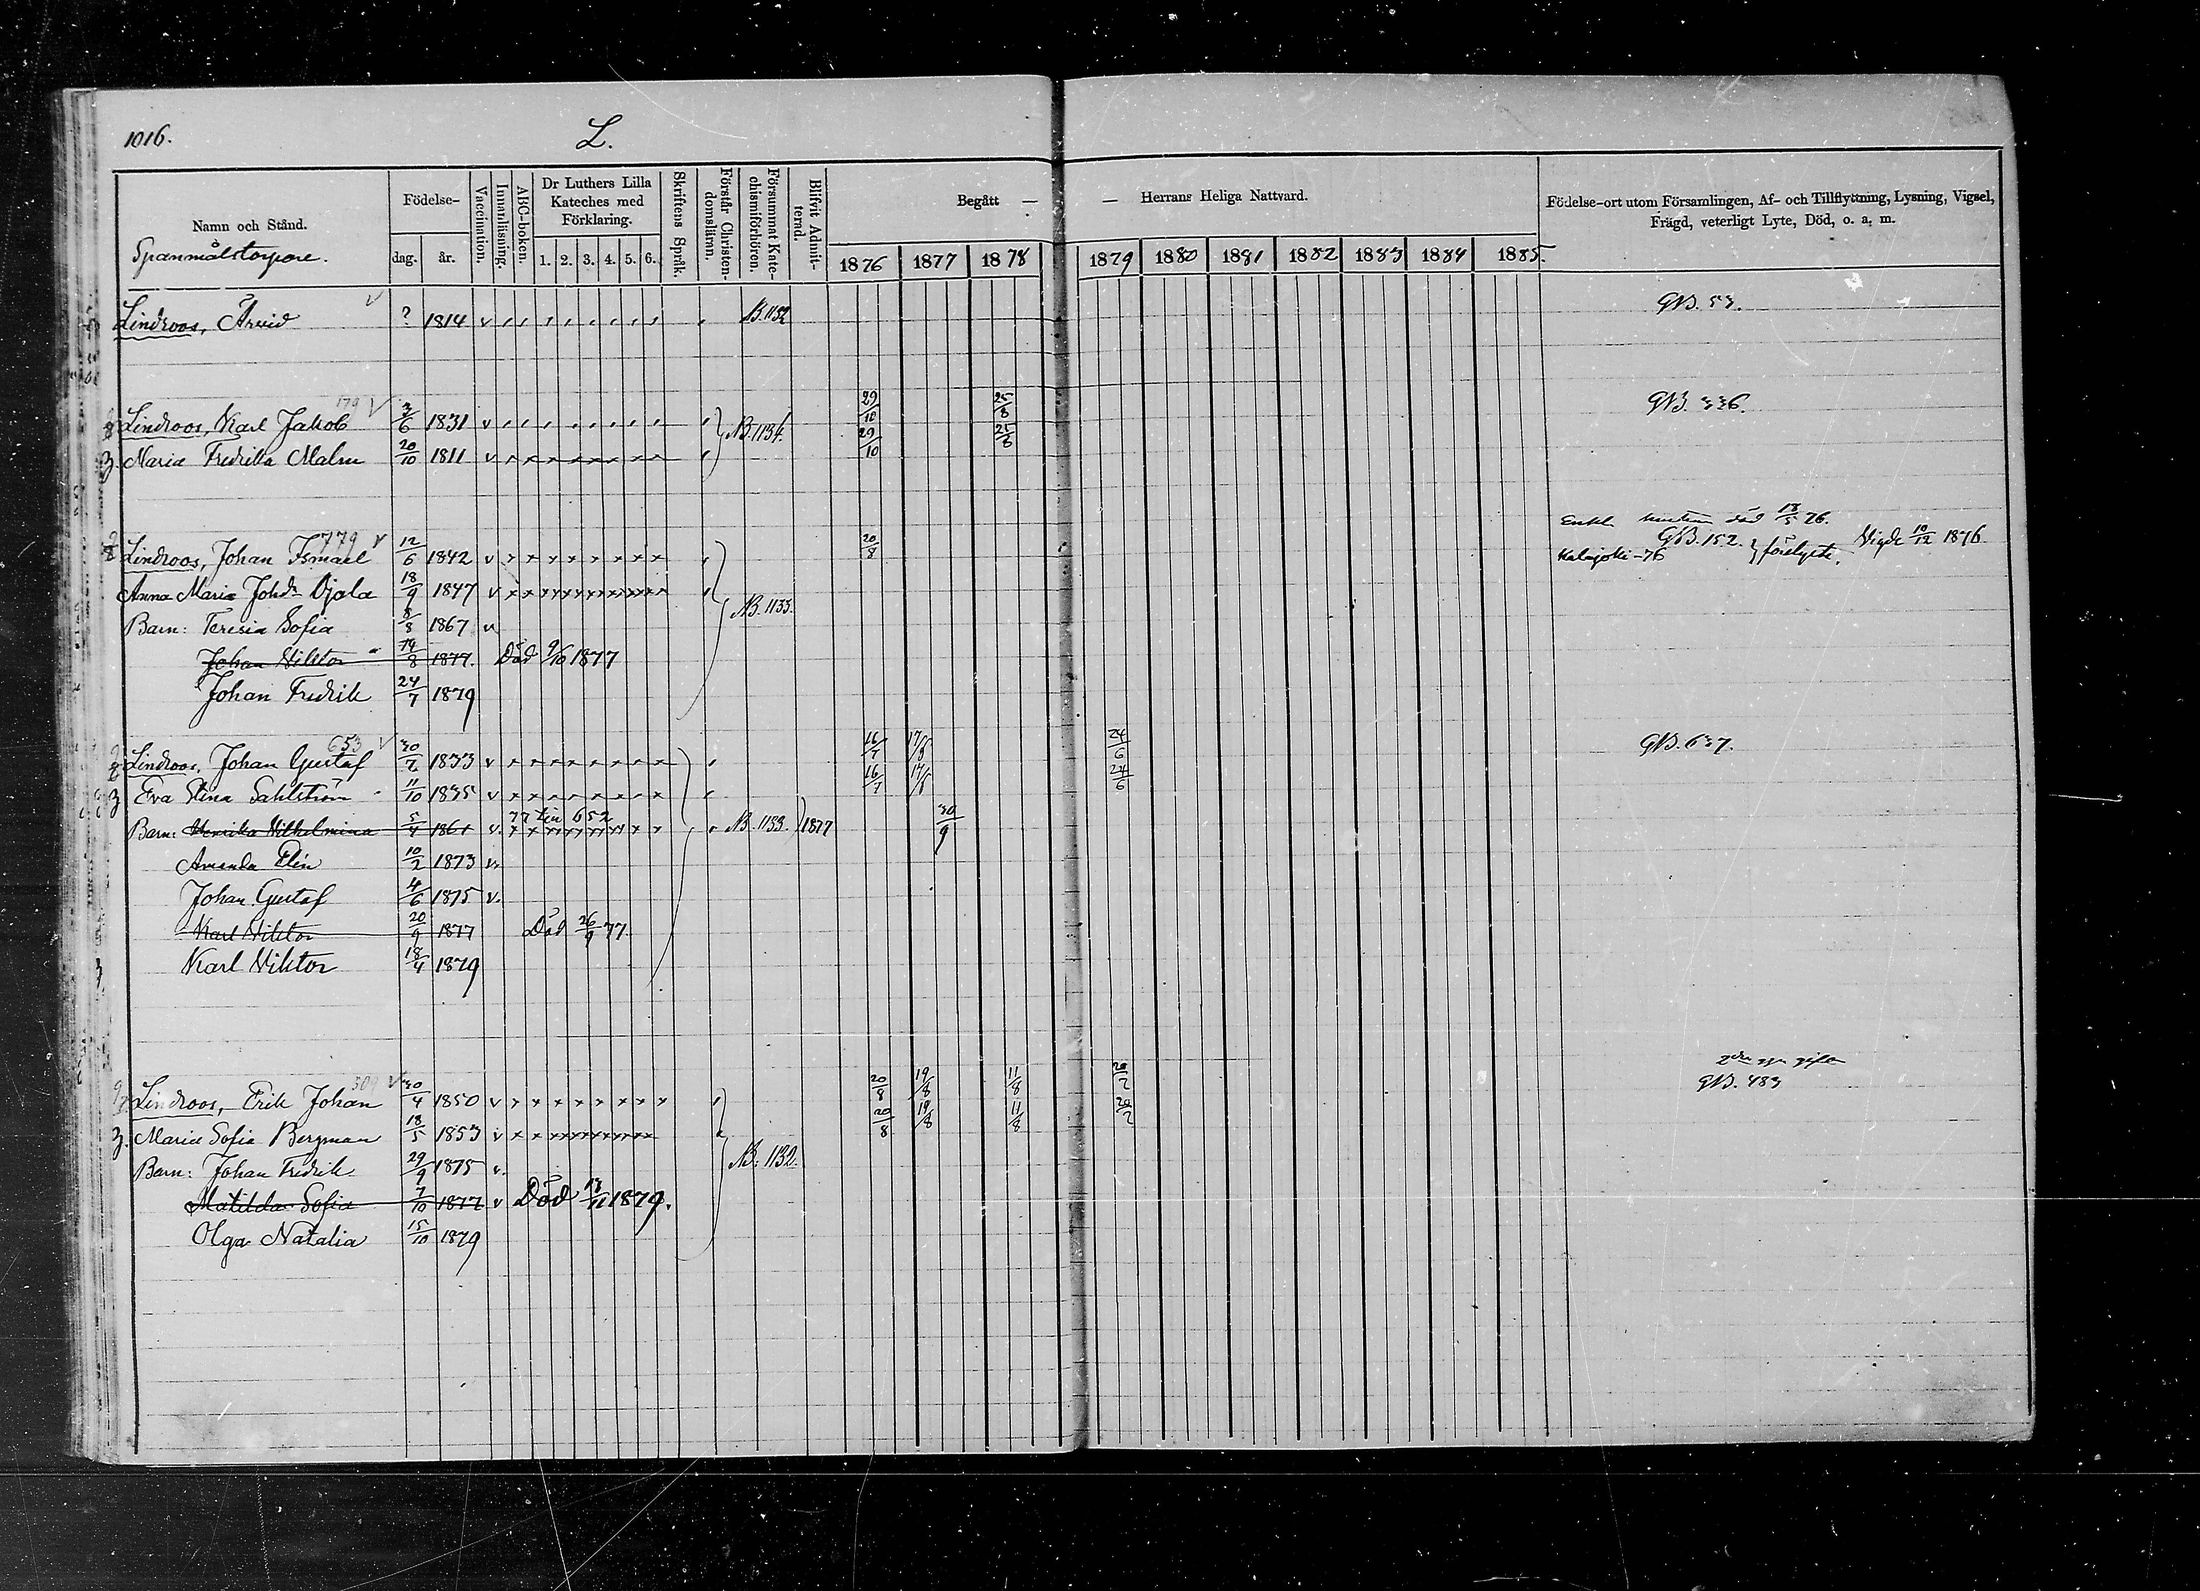 1016.
L.
Namn och Stånd.
Spanmålstorpare.
Födelse-
dag. år.
Vaccination.
Innanläsning.
ABC-boken.
Dr Luthers Lilla Kateches med Förklaring.
1. 2. 3. 4. 5. 6.
Skriftens Språk.
Förstår Christen-domsläran.
Försummat Kate-chismiförhören.
Blifvit Admit-terad.
Begått — — Herrans Heliga Nattvard.
1876 1877 1878 1879 1880 1881 1882 1883 1884 1885.
Födelse-ort utom Församlingen, Af- och Tillflyttning, Lysning, Vigsel,
Frägd, veterligt Lyte, Död, o. a. m.
Lindroos, Arvid ? 1814 v N.B. 1132 GB. 53.
179 v
Lindroos, Karl Jakob 3/6 1831 v N.B. 1134. 29/10 25/8 GB. 336.
3. Maria Fredrika Malm 20/10 1811 v 29/10 25/8
Enkl. död 18/5 76.
779 v
Lindroos, Johan Ismael 12/6 1842 v 20/8 GB. 152. Vigde 10/12 1876
Anna Maria Johds Ojala 18/9 1847 v N.B. 1133. Kalajoki -76
Barn: Teresia Sofia 8/8 1867 v
Johan Viktor 14/8 1877. Död 9/10 1877
Johan Fredrik 24/7 1879
653 v
Lindroos, Johan Gustaf 30/7 1833 v 16/7 17/6 24/6 GB. 637.
3 Eva Stina Sahlström 11/10 1835 v 16/7 24/6
77 till 652
Barn: Henrika Vilhelmina 5/4 1861 v. N.B. 1133. 1877 30/9
Amanda Elin 10/2 1873 v.
Johan Gustaf 4/6 1875 v.
Karl Viktor 20/9 1877 Död 26/9 77.
Karl Viktor 18/4 1879
gifte
509 v
Lindroos, Erik Johan 30/4 1850 v 20/8 19/8 11/8 GB. 483
3. Maria Sofia Bergman 18/5 1853 v 20/8 19/8 11/8
Barn: Johan Fredrik 29/9 1875 v. N.B. 1132.
Matilda Sofia 7/10 1877 v Död 13/11 1879.
Olga Natalia 15/10 1879